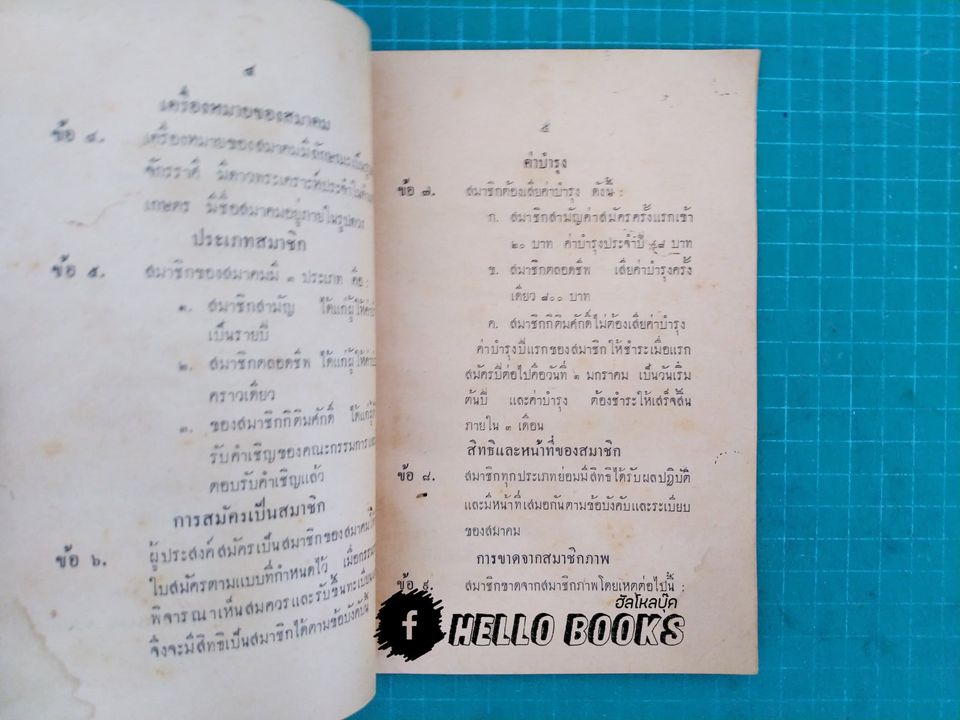 ๔
เครื่องหมายของสมาคม
ข้อ ๔. เครื่องหมายของสมาคมมีลักษณะเป็น
จักรราศี มีดาวพระเคราะห์ประจำ
เกษตร มีชื่อสมาคมอยู่ภายในรูปดวง
ประเภทสมาชิก
ข้อ ๕. สมาชิกของสมาคมมี ๓ ประเภท คือ :
๑. สมาชิกสามัญ ได้แก่ผู้ให้ค่า
เป็นรายปี
๒. สมาชิกตลอดชีพ ได้แก่ผู้ให้ค่า
คราวเดียว
๓. ของสมาชิกกิติมศักดิ์ ได้แก่
รับคำเชิญของคณะกรรมการและ
ตอบรับคำเชิญแล้ว
การสมัครเป็นสมาชิก
ข้อ ๖. ผู้ประสงค์สมัครเป็นสมาชิกของสมาคม
ใบสมัครตามแบบที่กำหนดไว้ เมื่อกรรม
พิจารณาเห็นสมควรและรับขึ้นทะเบียน
จึงจะมีสิทธิเป็นสมาชิกได้ตามข้อบังคับนี้
๕
ค่าบำรุง
ข้อ ๗. สมาชิกต้องเสียค่าบำรุง ดังนี้ :
ก. สมาชิกสามัญค่าสมัครครั้งแรกเข้า
๒๐ บาท ค่าบำรุงประจำปี ๔๘ บาท
ข. สมาชิกตลอดชีพ เสียค่าบำรุงครั้ง
เดียว ๘๐๐ บาท
ค. สมาชิกกิติมศักดิ์ไม่ต้องเสียค่าบำรุง
ค่าบำรุงปีแรกของสมาชิกให้ชำระเมื่อแรก
สมัครปีต่อไปถือวันที่ ๒ มกราคม เป็นวันเริ่ม
ต้นปี และค่าบำรุง ต้องชำระให้เสร็จสิ้น
ภายใน ๓ เดือน
สิทธิและหน้าที่ของสมาชิก
ข้อ ๘. สมาชิกทุกประเภทย่อมมีสิทธิได้รับผลปฏิบัติ
และมีหน้าที่เสมอกันตามข้อบังคับและระเบียบ
ของสมาคม
การขาดจากสมาชิกภาพ
ข้อ ๙. สมาชิกขาดจากสมาชิกภาพโดยเหตุต่อไปนี้ :
ฮัลโหลบุ๊ค
f HELLO BOOKS